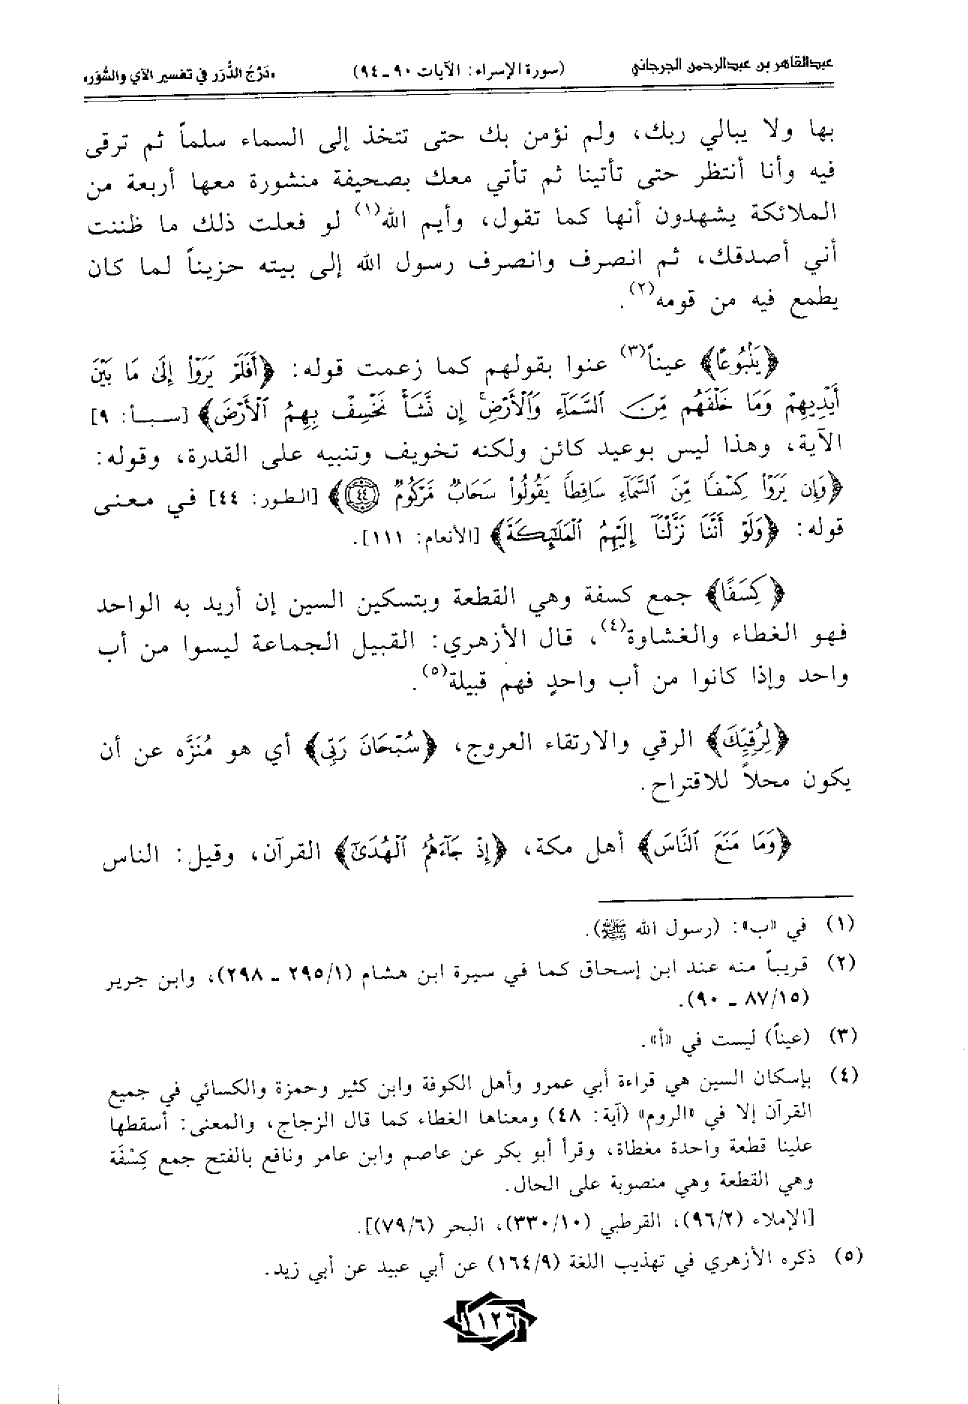 عبدالقاهر بن عبدالرحمن الجرجاني (سورة الإسراء: الآيات ٩٠ ـ ٩٤) «دَرْجُ الدُّرَر في تفسير الآي والسُّوَر»
بها ولا يبالي ربك، ولم نؤمن بك حتى تتخذ إلى السماء سلماً ثم ترقى
فيه وأنا أنتظر حتى تأتينا ثم تأتي معك بصحيفة منشورة معها أربعة من
الملائكة يشهدون أنها كما تقول، وأيم الله(١) لو فعلت ذلك ما ظننت
أني أصدقك، ثم انصرف وانصرف رسول الله إلى بيته حزيناً لما كان
يطمع فيه من قومه(٢).
﴿يَنْبُوعًا﴾ عيناً(٣) عنوا بقولهم كما زعمت قوله: ﴿أَفَلَمْ يَرَوْا إِلَى مَا بَيْنَ
أَيْدِيهِمْ وَمَا خَلْفَهُم مِّنَ السَّمَاءِ وَالْأَرْضِ إِن نَّشَأْ نَخْسِفْ بِهِمُ الْأَرْضَ﴾ [سبأ: ٩]
الآية، وهذا ليس بوعيد كائن ولكنه تخويف وتنبيه على القدرة، وقوله:
﴿وَإِن يَرَوْا كِسْفًا مِّنَ السَّمَاءِ سَاقِطًا يَقُولُوا سَحَابٌ مَّرْكُومٌ ٤٤﴾ [الطور: ٤٤] في معنى
قوله: ﴿وَلَوْ أَنَّنَا نَزَّلْنَا إِلَيْهِمُ الْمَلَائِكَةَ﴾ [الأنعام: ١١١].
﴿كِسَفًا﴾ جمع كسفة وهي القطعة وبتسكين السين إن أريد به الواحد
فهو الغطاء والغشاوة(٤)، قال الأزهري: القبيل الجماعة ليسوا من أب
واحد وإذا كانوا من أب واحدٍ فهم قبيلة(٥).
﴿لِرُقِيِّكَ﴾ الرقي والارتقاء العروج، ﴿سُبْحَانَ رَبِّي﴾ أي هو مُنَزَّه عن أن
يكون محلاً للاقتراح.
﴿وَمَا مَنَعَ النَّاسَ﴾ أهل مكة، ﴿إِذْ جَاءَهُمُ الْهُدَى﴾ القرآن، وقيل: الناس
(١) في «ب»: (رسول الله ﷺ).
(٢) قريباً منه عند ابن إسحاق كما في سيرة ابن هشام (٢٩٥/١ ـ ٢٩٨)، وابن جرير
(٨٧/١٥ ـ ٩٠).
(٣) (عيناً) ليست في «أ».
(٤) بإسكان السين هي قراءة أبي عمرو وأهل الكوفة وابن كثير وحمزة والكسائي في جميع
القرآن إلا في «الروم» (آية: ٤٨) ومعناها الغطاء كما قال الزجاج، والمعنى: أسقطها
علينا قطعة واحدة مغطاة، وقرأ أبو بكر عن عاصم وابن عامر ونافع بالفتح جمع كِسْفَة
وهي القطعة وهي منصوبة على الحال.
[الإملاء (٩٦/٢)، القرطبي (٣٣٠/١٠)، البحر (٧٩/٦)].
(٥) ذكره الأزهري في تهذيب اللغة (١٦٤/٩) عن أبي عبيد عن أبي زيد.
١١٢٦